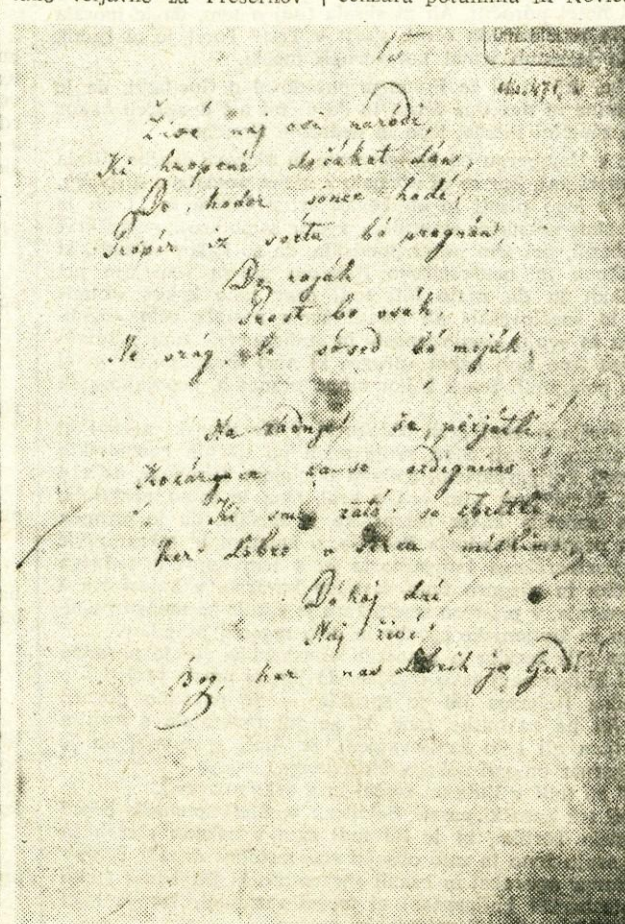 15
Živé naj vsi naródi,
Ki hrepené dočákat dán,
De, koder sonce hodi,
Prepír iz svéta bó pregnán,
De roják
Prost bo vsák,
Ne vrág, le sósed bó meják,
Na zádnje še, perjátli,
Kozárce za-se vzdignimo
Ki smo zató se zbrátli
Ker dobro v sércu mislimo,
Dókaj dni
Naj živí
Bog, kar nas dobrih je ljudi